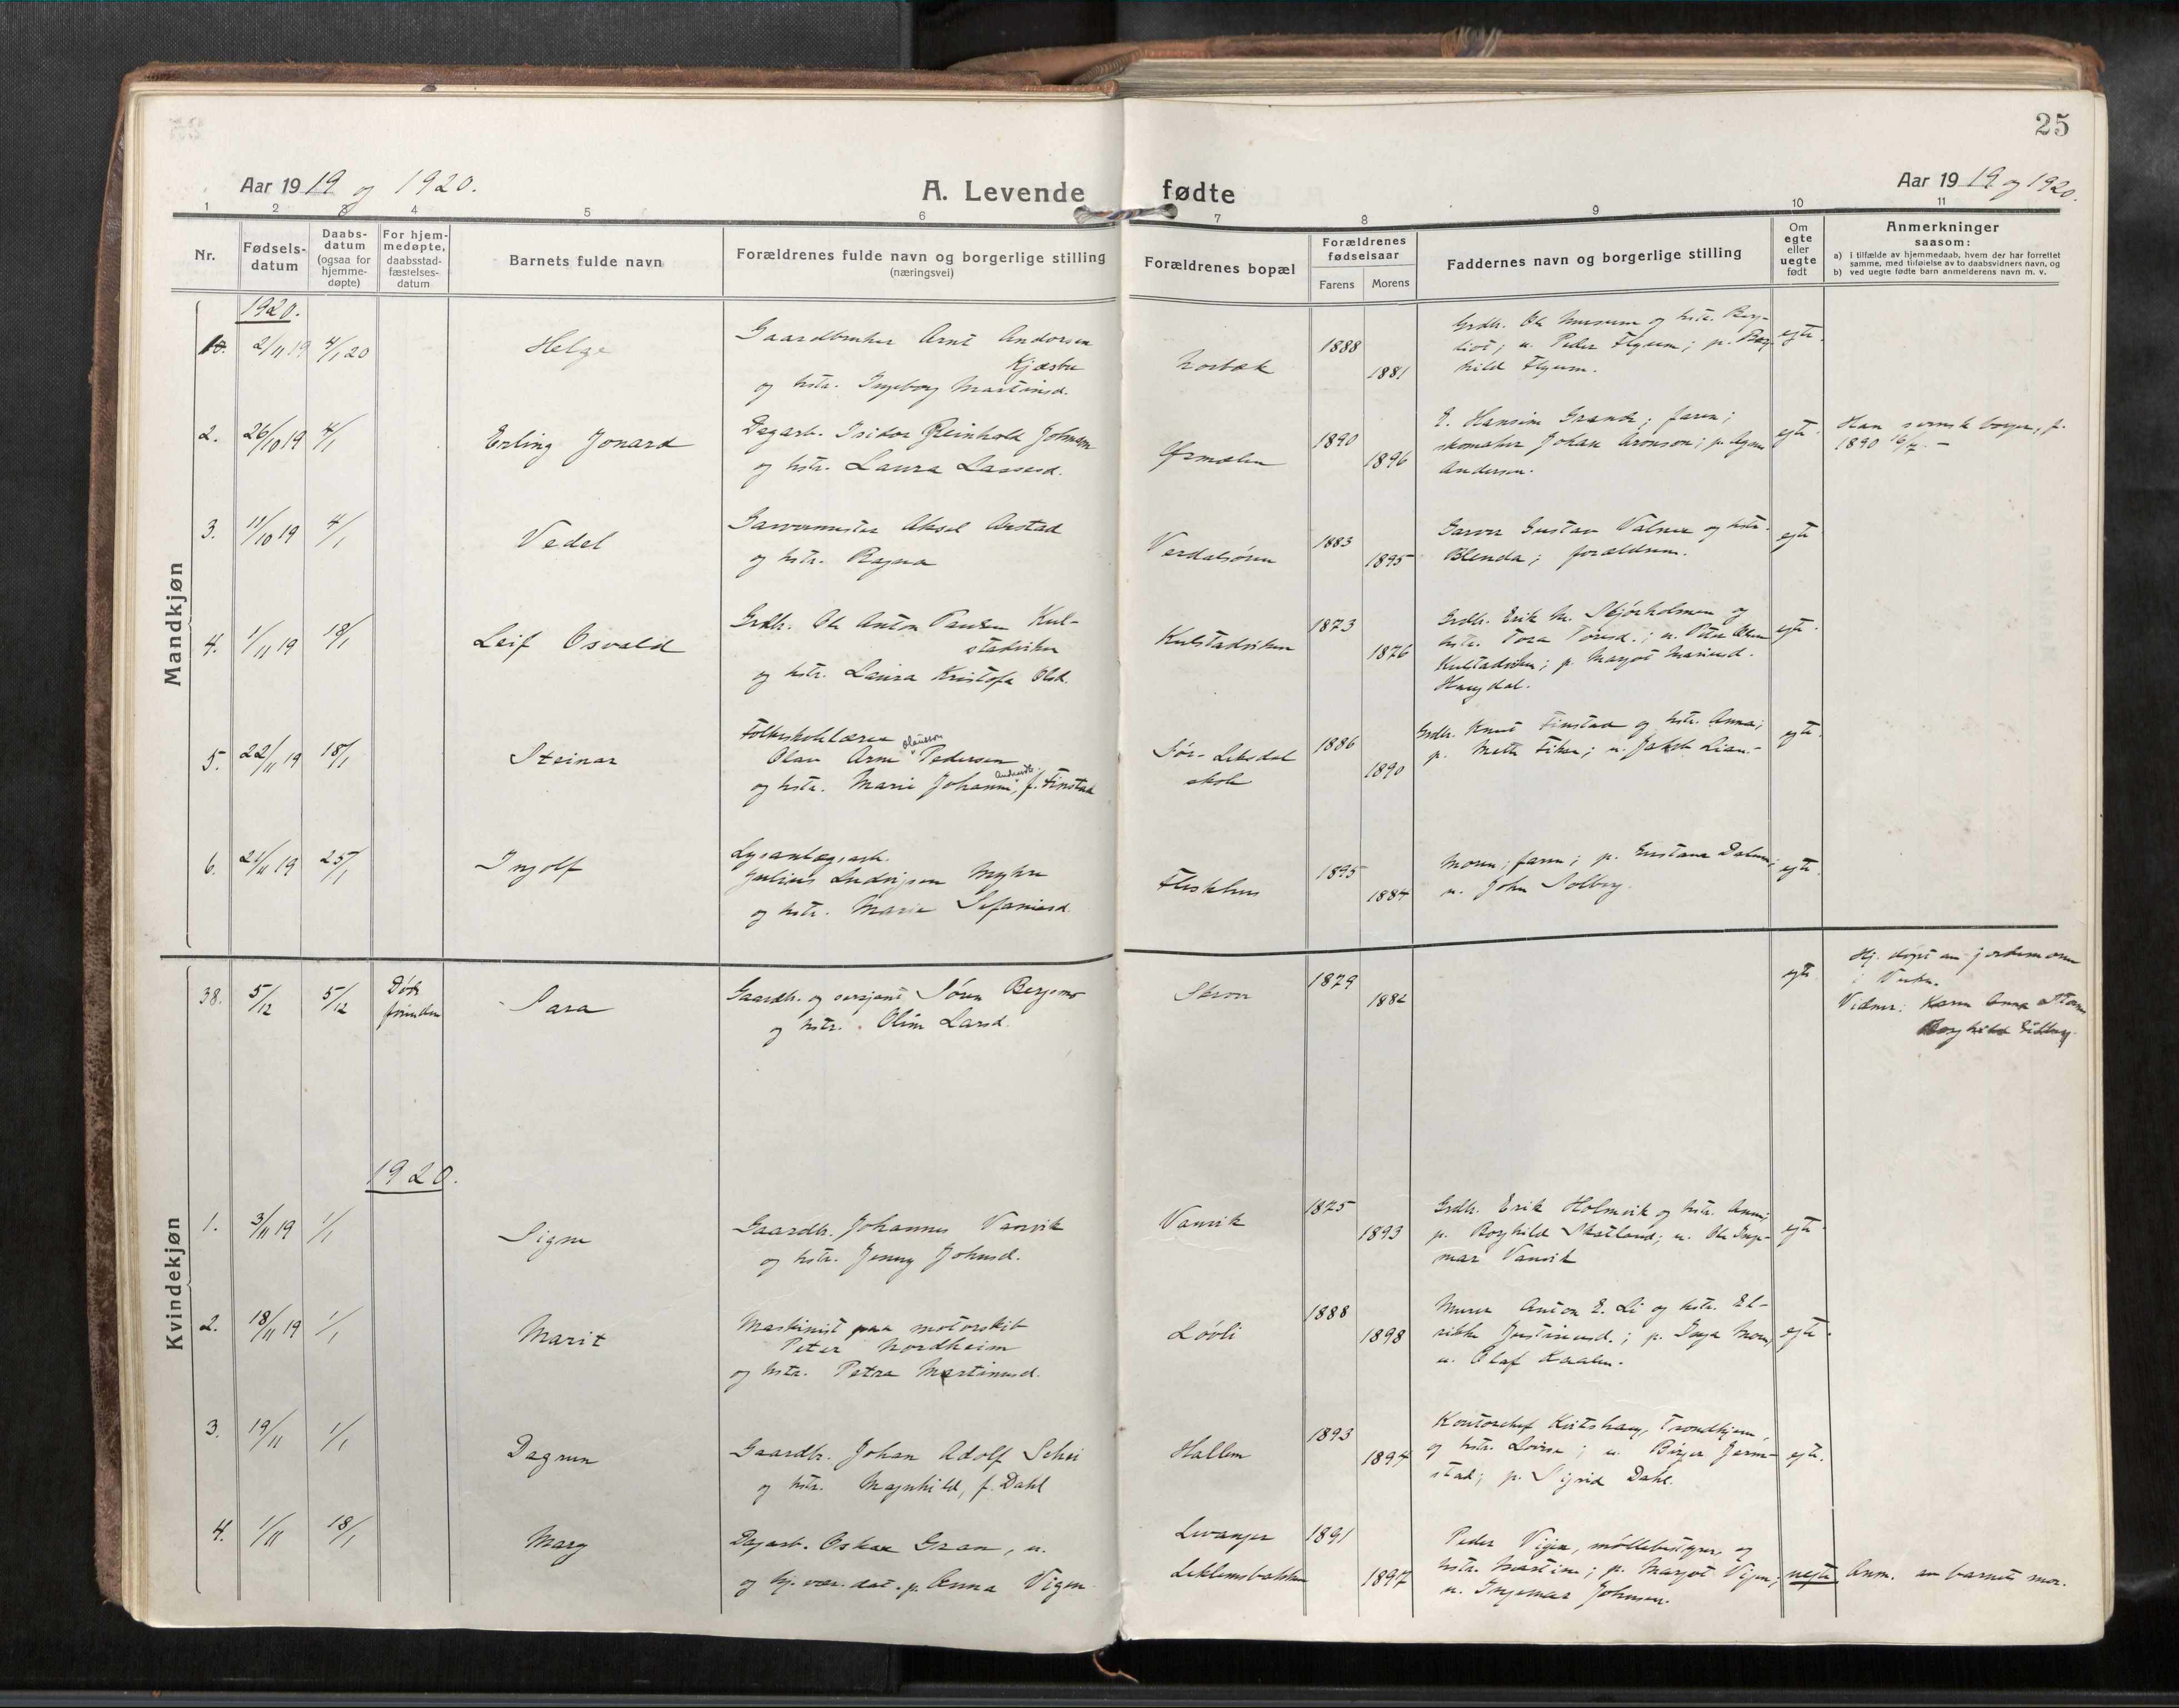 25
Aar 1919 og 1920.
A. Levende fødte
Aar 1919 og 1920.
1 2 3 4 5 6 7 8 9 10 11
Nr.
Fødsels-
datum
Daabs-
datum
(ogsaa for
hjemme-
døpte)
For hjem-
medøpte,
daabsstad-
fæstelses-
datum
Barnets fulde navn
Forældrenes fulde navn og borgerlige stilling
(næringsvei)
Forældrenes bopæl
Forældrenes
fødselsaar
Farens Morens
Faddernes navn og borgerlige stilling
Om
egte
eller
uegte
født
Anmerkninger
saasom:
a) i tilfælde av hjemmedaab, hvem der har forrettet
samme, med tilføielse av to daabsvidners navn, og
b) ved uegte fødte barn anmelderens navn m. v.
Mandkjøn
1920.
2/11 19 4/1 20 Helge
Gaardbruker Arnt Andersen
Kjæsbu
og hstr. Ingeborg Martinsd.
1888
1881
Grdbr. Ole Musum og hstr. Berg-
liot; u. Peder Flyum; p.
hild Flyum.
egte.
2. 26/10 19 4/1 Erling Jonard
Dagarb. Isidor Reinhold Johnson
og hstr. Laura Lassesd.
Ørmelen
1890
1896
E. Hansine Grande; faren;
skomaker Johan Aronson; p. Agnes
Andersen.
egte.
Han svensk borger, f.
1890 16/7. -
3. 11/10 19 4/1 Vedel
Garvermester Aksel Arstad
og hstr. Ragna
Verdalsøren
1883
1895
Garver Gustav Valner og hstr.
Blenda; forældrene.
egte
4. 1/11 19 18/1 Leif Osvald
Grdbr. Ole Anton Paulsen Kul-
stadviken
og hstr. Laura Kristofa Olsd.
Kulstadviken
1873
1876
Grdbr. Erik M. Skjørholmen og
hstr. Tora Toresd.; u. Peter Olsen
Kulstadviken; p. Margot Mariusd.
Haugdal.
egte.
5. 22/11 19 18/1 Steinar
Folkeskolelærer
Olav Arne Olausson Pedersen
og hstr. Marie Johanne, f. Finstad
Sør-Leksdal
skole
1886
1890
Grdbr. Knut Finstad og hstr. Anna;
p. Mette Fikse; u. Jakob Lian.-
egte.
6. 21/11 19 25/1 Ingolf
Lysanlægsarb.
Julius Ludvigsen Myhre
og hstr. Marie Sefaniasd.
Fleskhus
1895
1884
Moren; faren; p. Gustava Dalum;
u. John Solberg.
egte.
Kvindekjøn
38. 5/12 5/12 Døde
forinden
Sara
Gaardbr. og sersjant Søren Bergsmo
og hstr. Oline Larsd.
Skrove
1879
1882
egte.
Hj. døpt av jordemoren
Vidner: Karen Anna
Borghild
1920.
1. 3/11 19 1/1 Signe
Gaardbr. Johannes Vansvik
og hstr. Jenny Johnsd.
Vansvik
1875
1893
Grdbr. Erik Holmvik og hstr. Anna;
p. Borghild Skatland; u. Ole Inge-
mar Vansvik
egte.
2. 18/11 19 1/1 Marit
Maskinist paa motorskib
Peter Nordheim
og hstr. Petra Martinusd.
Lövli
1888
1898
Murer Anton E. Li og hstr. El-
rikke Justinusd.; p. Inga Moen,
u. Olaf Kvalen.
egte.
3. 19/11 1/1 Dagrun
Gaardbr. Johan Adolf Schei
og hstr. Magnhild, f. Dahl
Hallem
1893
1894
Kontorchef Kvitshaug, Trondhjem,
og hstr. Lovise; u. Birger Jerm-
stad; p. Sigrid Dahl.
egte.
4. 1/11 18/1 Mary
Dagarb. Oskar Gran, u.
og hj. vær. dat. p. Anna Vigen
Levanger
Leklemsbakken
1891
1897
Peder Vigen, møllebestyrer, og
hstr. Martine; p. Margot Vigen;
u. Ingemar Johnsen.
uegte
Anm. av barnets mor.